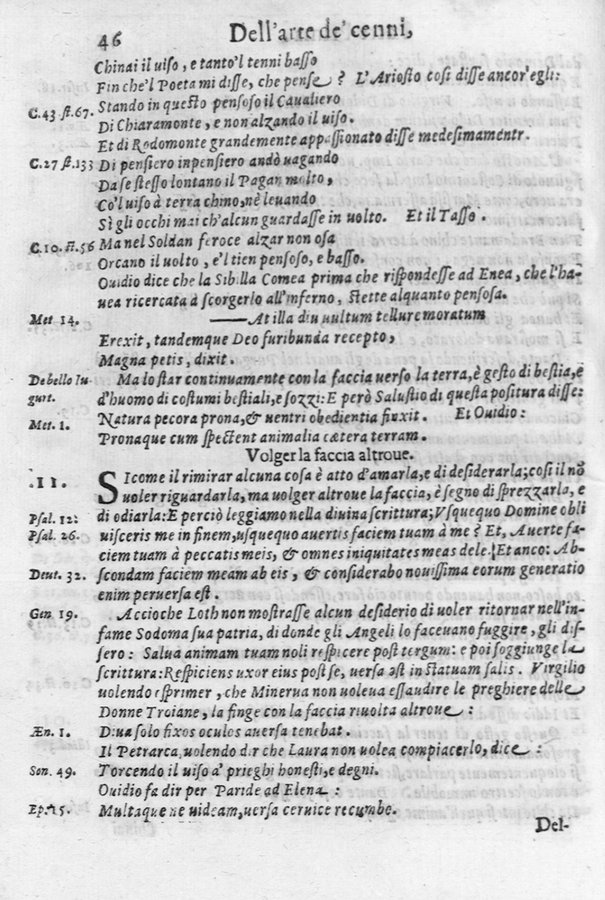 46 Dell'arte de' cenni,
Chinai il uiso, e tanto'l tenni basso
Fin che'l Poeta mi disse, che pense? L'Ariosto cosi disse ancor'egli:
C.43 st.67. Stando in questo pensoso il Caualiero
Di Chiaramonte, e non alzando il uiso.
Et di Rodomonte grandemente appassionato disse medesimamentr.
C.27 st.133 Di pensiero inpensiero andò uagando
Da se stesso lontano il Pagan molto,
Co'l uiso à terra chino, nè leuando
Sì gli occhi mai ch'alcun guardasse in uolto. Et il Tasso.
C.10. st.56 Ma nel Soldan feroce alzar non osa
Orcano il uolto, e'l tien pensoso, e basso.
Ouidio dice che la Sibilla Comea prima che rispondesse ad Enea, che l'ha-
uea ricercata à scorgerlo all'inferno, stette alquanto pensosa.
Met 14. ——At illa diu uultum tellure moratum
Erexit, tandemque Deo furibunda recepto,
Magna petis, dixit.
De bello Iu- Ma lo star continuamente con la faccia uerso la terra, è gesto di bestia, e
gurt. d'huomo di costumi bestiali, e sozzi: E però Salustio di questa positura disse:
Met. 1. Natura pecora prona, & uentri obedientia finxit. Et Ouidio:
Pronaque cum spectent animalia cætera terram.
Volger la faccia altroue.
.11. SIcome il rimirar alcuna cosa è atto d'amarla, e di desiderarla; cosi il nõ
uoler riguardarla, ma uolger altroue la faccia, è segno di sprezzarla, e
Psal. 12: di odiarla: E perciò leggiamo nella diuina scrittura; Vsquequo Domine obli
Psal. 26. uisceris me in finem, usquequo auertis faciem tuam à me? Et, Auerte fa-
ciem tuam à peccatis meis, & omnes iniquitates meas dele. Et anco: Ab-
Deut. 32. scondam faciem meam ab eis, & considerabo nouissima eorum generatio
enim peruersa est.
Gen 19. Accioche Loth non mostrasse alcun desiderio di uoler ritornar nell'in-
fame Sodoma sua patria, di donde gli Angeli lo faceuano fuggire, gli dis-
sero: Salua animam tuam noli respicere post tergum: e poi soggiunge la
scrittura: Respiciens uxor eius post se, uersa est in statuam salis. Virgilio
uolendo esprimer, che Minerua non uoleua essaudire le preghiere delle
Donne Troiane, la finge con la faccia riuolta altroue:
Æn. 1. Diua solo fixos oculos auersa tenebat.
Il Petrarca, uolendo dir che Laura non uolea compiacerlo, dice:
Son. 49. Torcendo il uiso a' prieghi honesti, e degni.
Ouidio fa dir per Paride ad Elena:
Ep. 15. Multaque ne uideam, uersa ceruice recumbo.
Del-